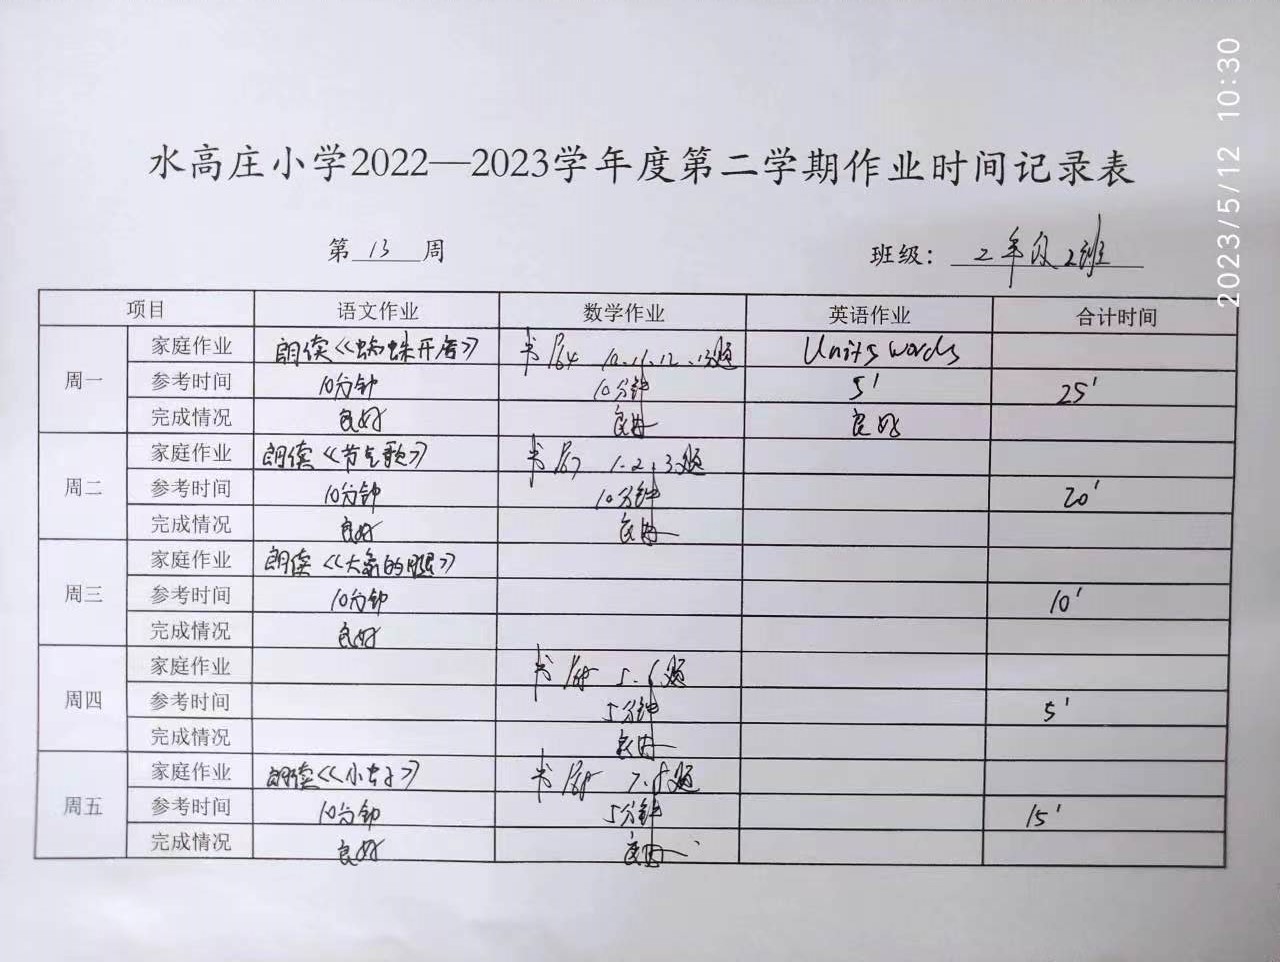 水高庄小学2022—2023学年度第二学期作业时间记录表
第 13 周 班级： 2年级2班
项目 语文作业 数学作业 英语作业 合计时间
周一 家庭作业 朗读《蜘蛛开店》 书P64 10、11、12、13题 Unit5 words
参考时间 10分钟 10分钟 5' 25'
完成情况 良好 良好 良好
周二 家庭作业 朗读《节气歌》 书P67 1.2.3题
参考时间 10分钟 10分钟 20'
完成情况 良好 良好
周三 家庭作业 朗读《大象的腿》
参考时间 10分钟 10'
完成情况 良好
周四 家庭作业 书P68 5.6题
参考时间 5分钟 5'
完成情况 良好
周五 家庭作业 朗读《小虫子》 书P68 7.8题
参考时间 10分钟 5分钟 15'
完成情况 良好 良好
2023/5/12 10:30